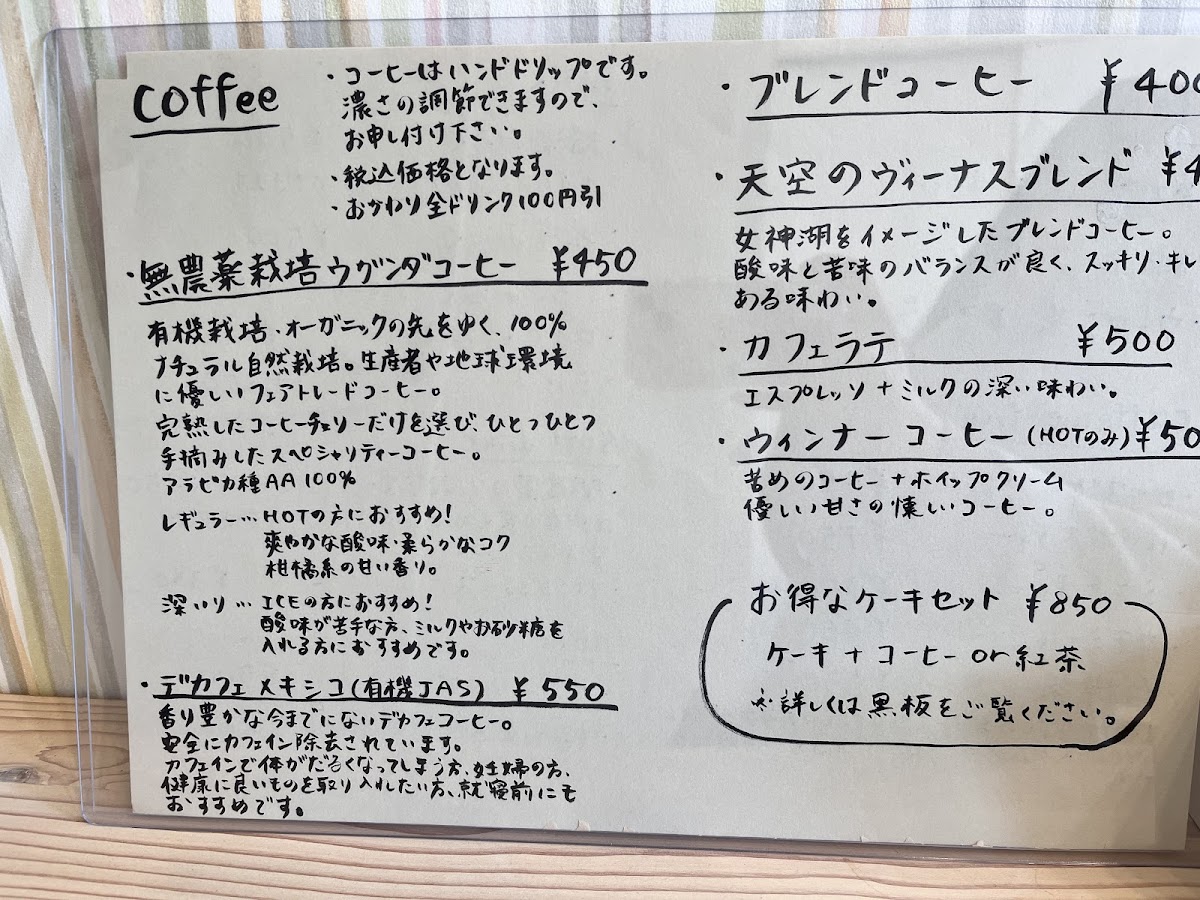 coffee
・コーヒーはハンドドリップです。
濃さの調節できますので、
お申し付け下さい。
・税込価格となります。
・おかわり全ドリンク100円引
・無農薬栽培ウガンダコーヒー ¥450
有機栽培・オーガニックの先をゆく、100%
ナチュラル自然栽培。生産者や地球環境
に優しいフェアトレードコーヒー。
完熟したコーヒーチェリーだけを選び、ひとつひとつ
手摘みしたスペシャリティーコーヒー。
アラビカ種AA100%
レギュラー…HOTの方におすすめ!
爽やかな酸味・柔らかなコク
柑橘系の甘い香り。
深いり…ICEの方におすすめ!
酸味が苦手な方、ミルクやお砂糖を
入れる方におすすめです。
・デカフェメキシコ(有機JAS) ¥550
香り豊かな今までにないデカフェコーヒー。
安全にカフェイン除去されています。
カフェインで体がだるくなってしまう方、妊婦の方、
健康に良いものを取り入れたい方、就寝前にも
おすすめです。
・ブレンドコーヒー ¥400
・天空のヴィーナスブレンド ¥4
女神湖をイメージしたブレンドコーヒー。
酸味と苦味のバランスが良く、スッキリ・キレ
ある味わい。
・カフェラテ ¥500
エスプレッソ+ミルクの深い味わい。
・ウィンナーコーヒー(HOTのみ)¥50
苦めのコーヒー+ホイップクリーム
優しい甘さの懐しいコーヒー。
お得なケーキセット ¥850
ケーキ+コーヒーor紅茶
※詳しくは黒板をご覧ください。